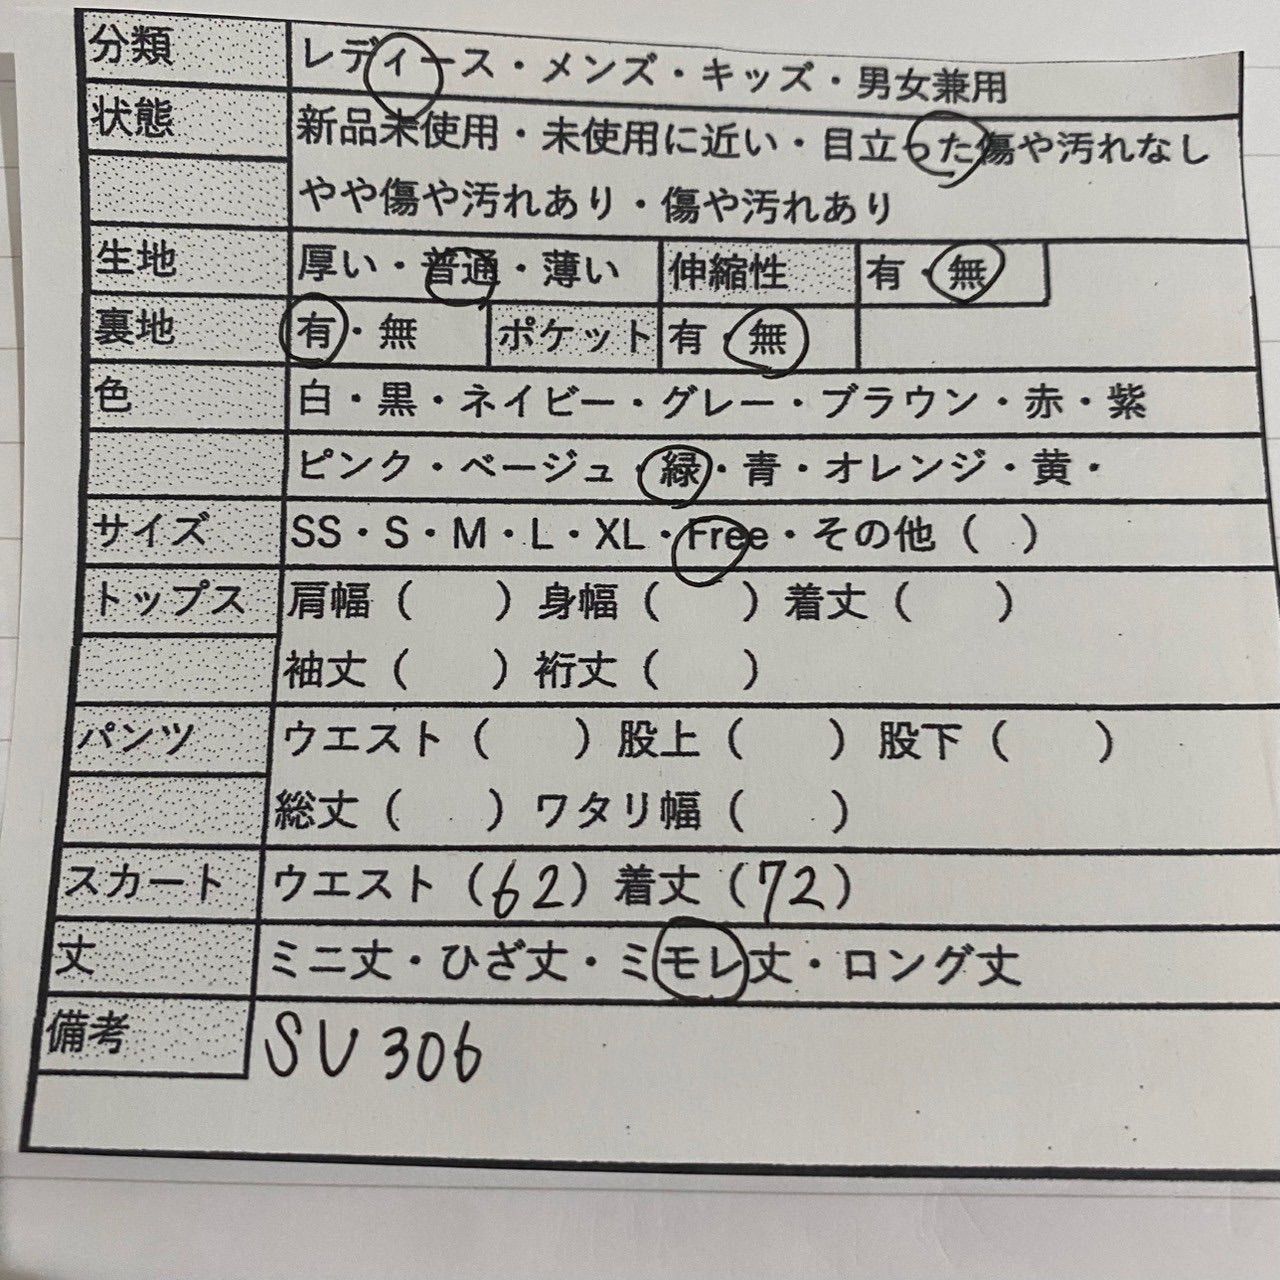 分類 レディース・メンズ・キッズ・男女兼用
状態 新品未使用・未使用に近い・目立った傷や汚れなし
やや傷や汚れあり・傷や汚れあり
生地 厚い・普通・薄い 伸縮性 有・無
裏地 有・無 ポケット 有・無
色 白・黒・ネイビー・グレー・ブラウン・赤・紫
ピンク・ベージュ・緑・青・オレンジ・黄・
サイズ SS・S・M・L・XL・Free・その他（ ）
トップス 肩幅（ ）身幅（ ）着丈（ ）
袖丈（ ）裄丈（ ）
パンツ ウエスト（ ）股上（ ）股下（ ）
総丈（ ）ワタリ幅（ ）
スカート ウエスト（62）着丈（72）
丈 ミニ丈・ひざ丈・ミモレ丈・ロング丈
備考 SU306